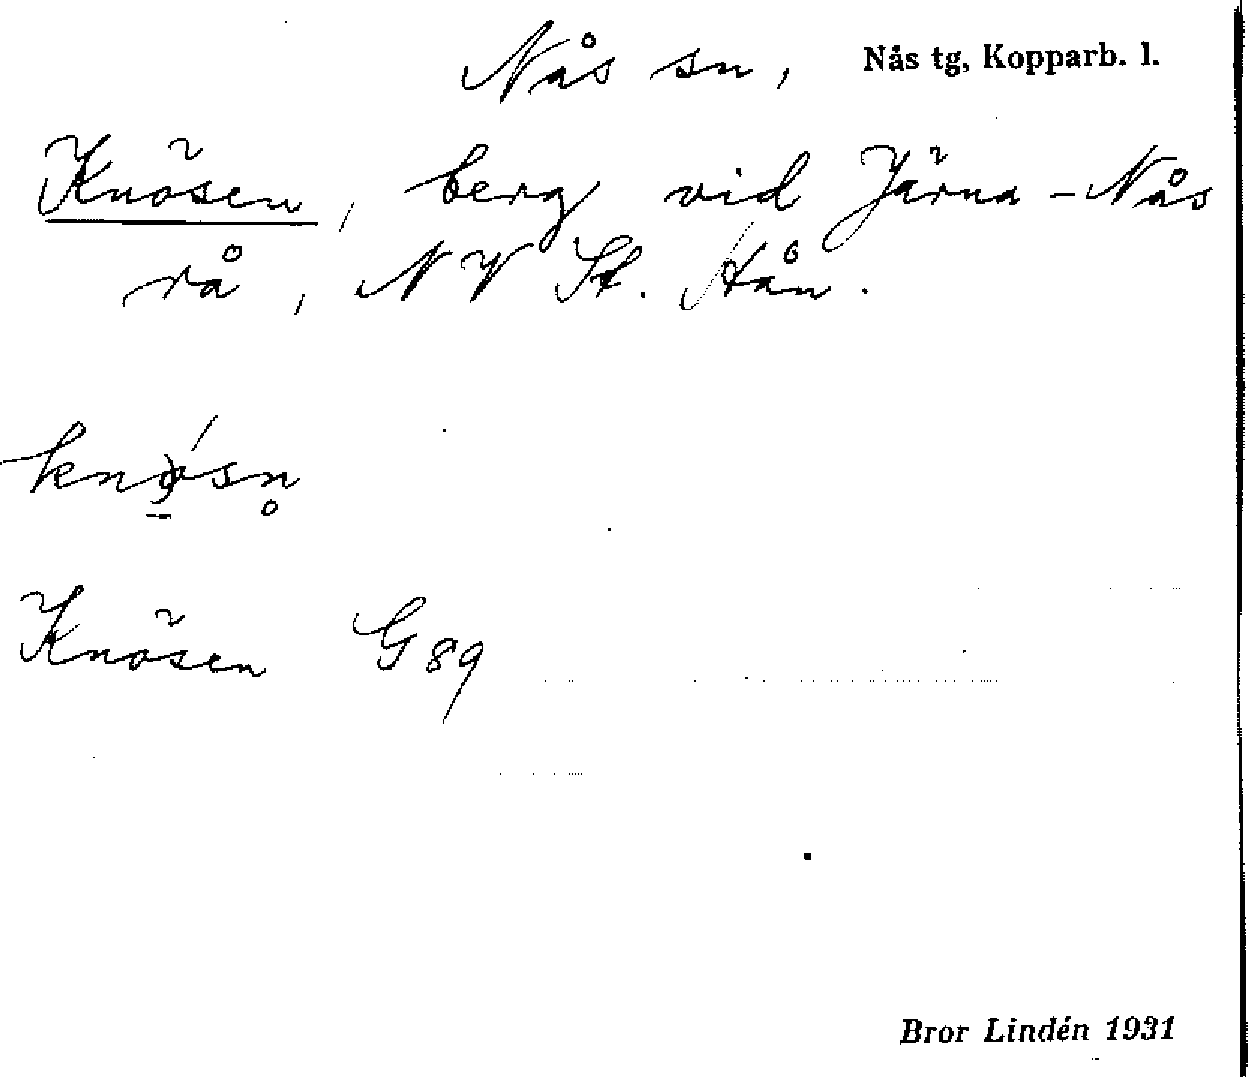 Nås sn, Nås tg, Kopparb. l.
Knösen, berg vid Järna-Nås
rå, NV St. Hån.
knǿ̱sn̥
Knösen G 89
Bror Lindén 1931